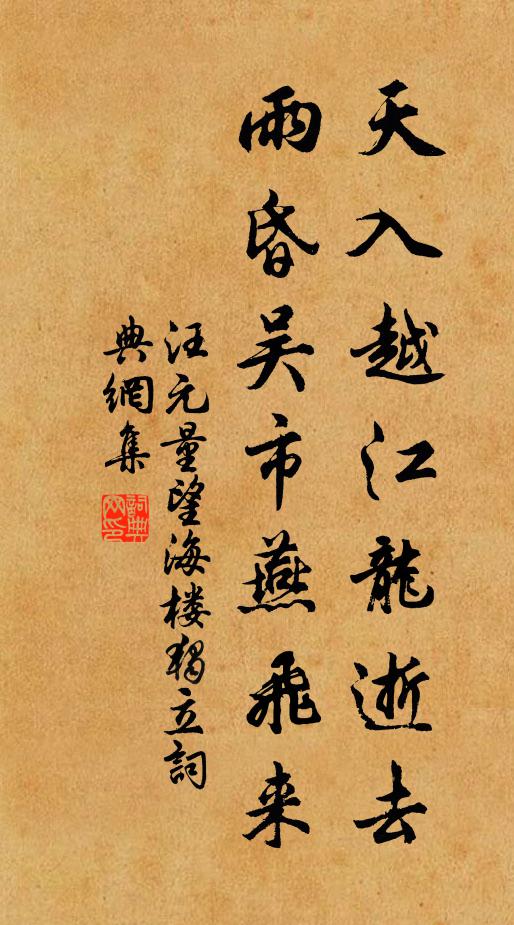 天入越江龍逝去
雨昏吴市燕飛来
汪元量望海楼獨立詞
典網集
詞典網印